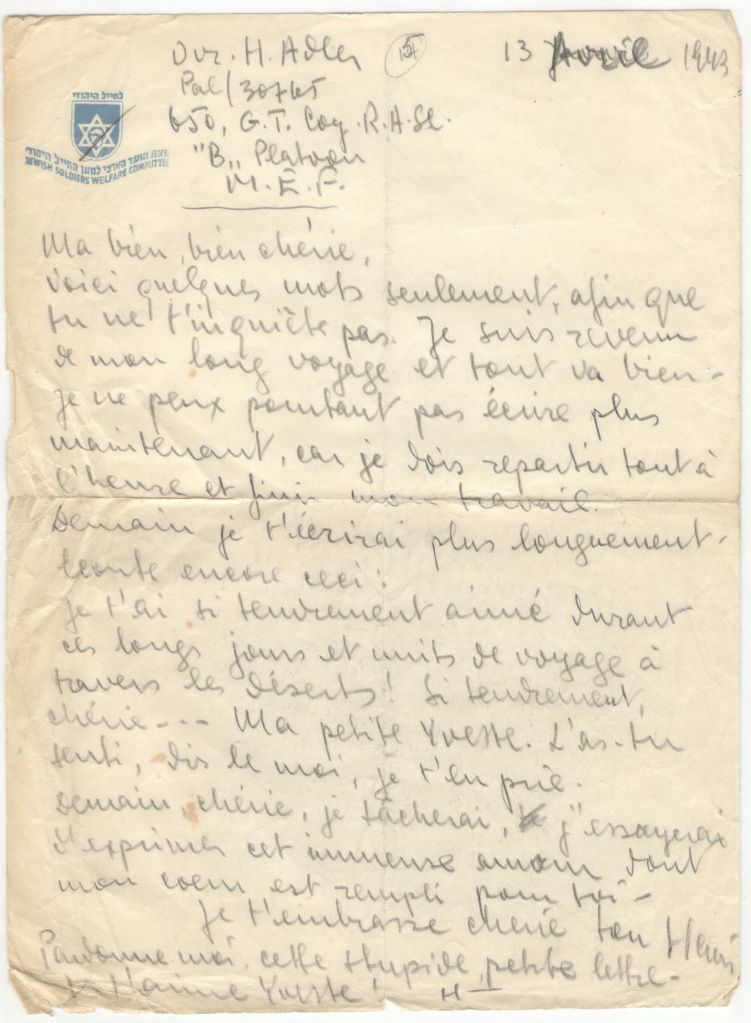 Dvr. H. Adler
13 Avril 1943
Pal/30765
לחייל היהודי
650, G. T. Coy. R.A.S.C.
"B" Platoon
הועד הארצי למען החייל היהודי
JEWISH SOLDIERS WELFARE COMMITTEE
M. E. F.
Ma bien, bien chérie,
voici quelques mots seulement, afin que
tu ne t'inquiète pas. Je suis revenu
de mon long voyage et tout va bien -
je ne peux pourtant pas écrire plus
maintenant, car je dois repartir tout à
l'heure et finir mon travail.
Demain je t'écrirai plus longuement.
Ecoute encore ceci:
je t'ai si tendrement aimé durant
ces longs jours et nuits de voyage à
travers les déserts! Si tendrement,
chérie --- Ma petite Yvette. L'as-tu
senti, dis le moi, je t'en prie.
Demain, chérie, je tâcherai, j'essayerai
d'exprimer cet immense amour dont
mon coeur est rempli pour toi -
Je t'embrasse chérie ton Henri
Pardonne moi, cette stupide, petite lettre -
Je t'aime Yvette! H